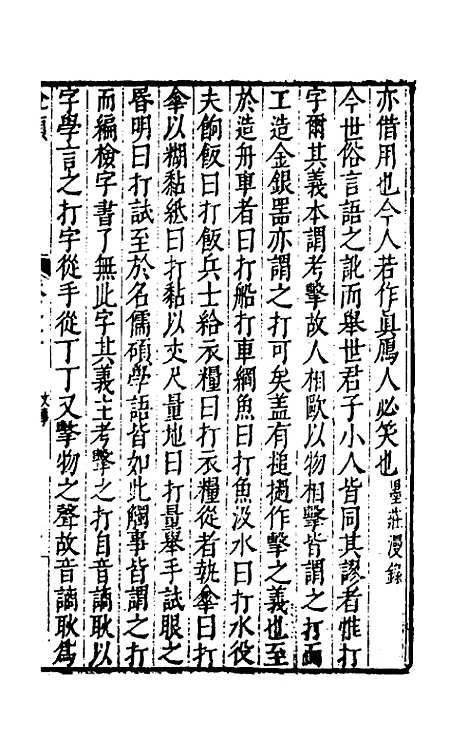 亦借用也今人若作真鴈人必笑也墨莊漫錄
今世俗言語之訛而舉世君子小人皆同其謬者惟打
字爾其義本謂考擊故人相毆以物相擊皆謂之打而
工造金銀器亦謂之打可矣盖有搥撾作擊之義也至
於造舟車者曰打船打車網魚曰打魚汲水曰打水役
夫餉飯曰打飯兵士給衣糧曰打衣糧從者執傘曰打
傘以糊黏紙曰打黏以丈尺量地曰打量舉手試眼之
昏明曰打試至於名儒碩學語皆如此觸事皆謂之打
而徧檢字書了無此字其義主考擊之打自音謫耿以
字學言之打字從手從丁丁又擊物之聲故音謫耿為